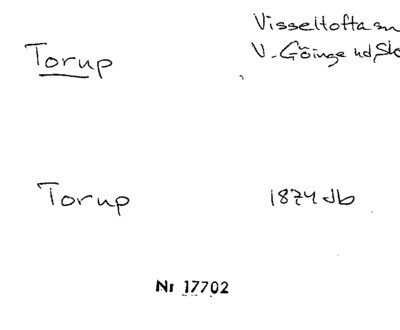 Torup
Visseltofta sn
V. Göinge hd, Sk
Torup
1874 db
Nr 17702